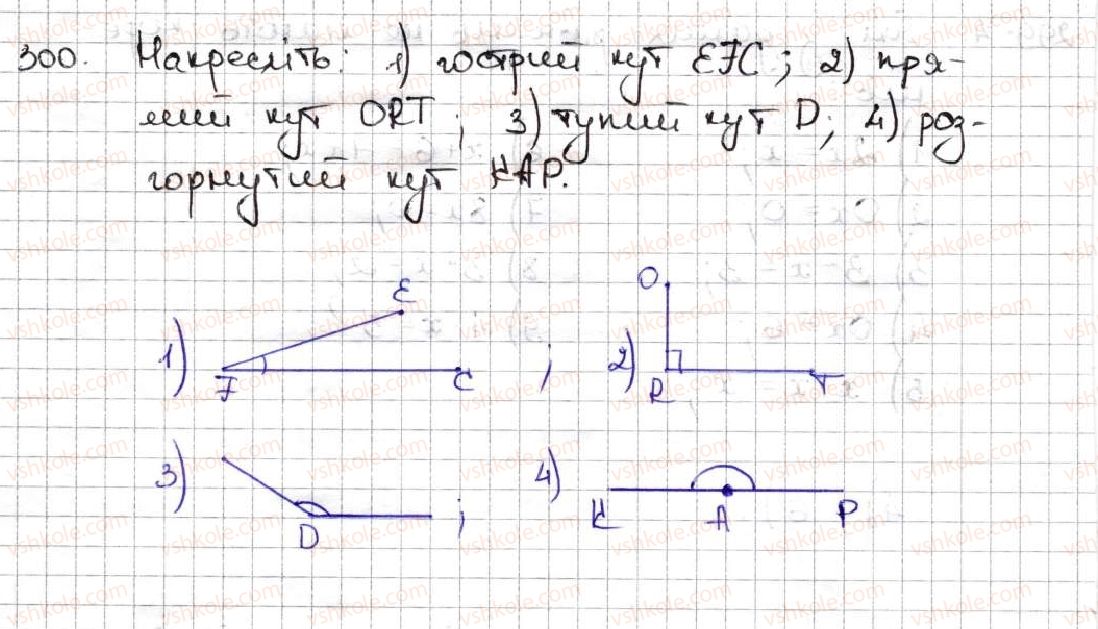 300. Накресліть: 1) гострий кут EFC; 2) пря-
мий кут ORT; 3) тупий кут D; 4) роз-
горнутий кут KAP.
1) E F C ; 2) O R T
3) D ; 4) K A P
vshkole.com